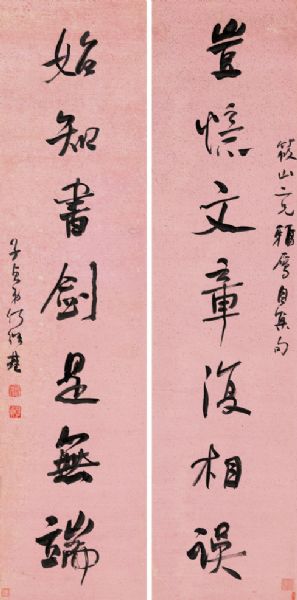 筱山二兄雅屬自集句
豈憶文章復相誤
始知書劍是無端
子貞弟何紹基